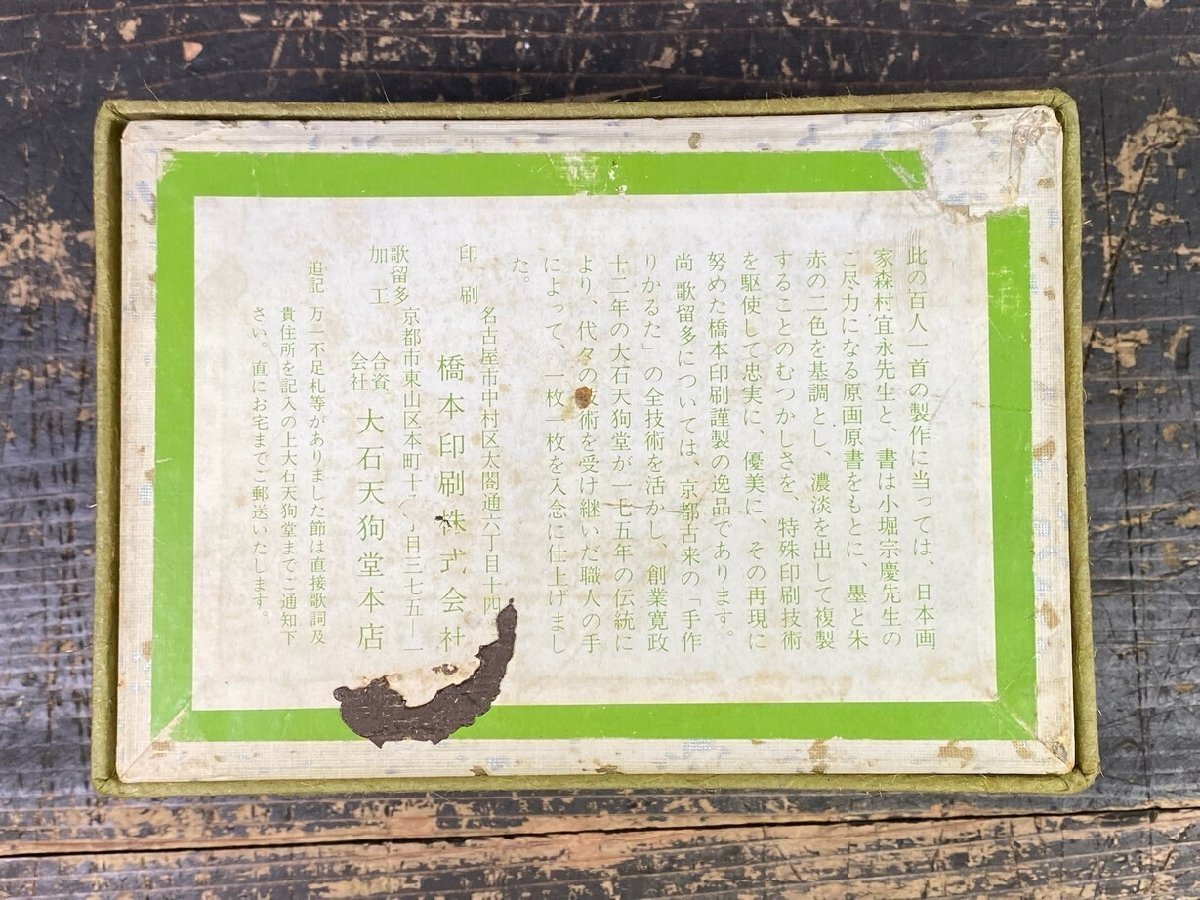 此の百人一首の製作に当っては、日本画
家森村宜永先生と、書は小堀宗慶先生の
ご尽力になる原画原書をもとに、墨と朱
赤の二色を基調とし、濃淡を出して複製
することのむつかしさを、特殊印刷技術
を駆使して忠実に、優美に、その再現に
努めた橋本印刷謹製の逸品であります。
尚 歌留多については、京都古来の「手作
りかるた」の全技術を活かし、創業寛政
十二年の大石天狗堂が一七五年の伝統に
より、代々の技術を受け継いだ職人の手
によって、一枚一枚を入念に仕上げまし
た。
印刷 名古屋市中村区太閤通六丁目十四
橋本印刷株式会社
歌留多加工 京都市東山区本町十 丁目三七五ー一
合資会社 大石天狗堂本店
追記 万一不足札等がありました節は直接歌詞及
貴住所を記入の上大石天狗堂までご通知下
さい。直にお宅までご郵送いたします。